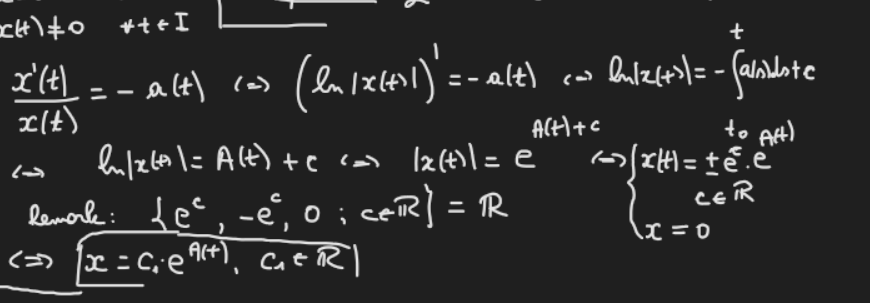 x(t) ≠ 0 ∀ t ∈ I
x'(t)/x(t) = - a(t) <=> (ln |x(t)|)' = - a(t) <=> ln|x(t)| = - ∫_{t_0}^{t} a(s)ds + c
<=> ln|x(t)| = A(t) + c <=> |x(t)| = e^{A(t)+c} <=> { x(t) = ± e^c · e^{A(t)}
c ∈ ℝ
x = 0
Remark: {e^c, -e^c, 0 ; c ∈ ℝ} = ℝ
<=> x = c₁·e^{A(t)}, c₁ ∈ ℝ